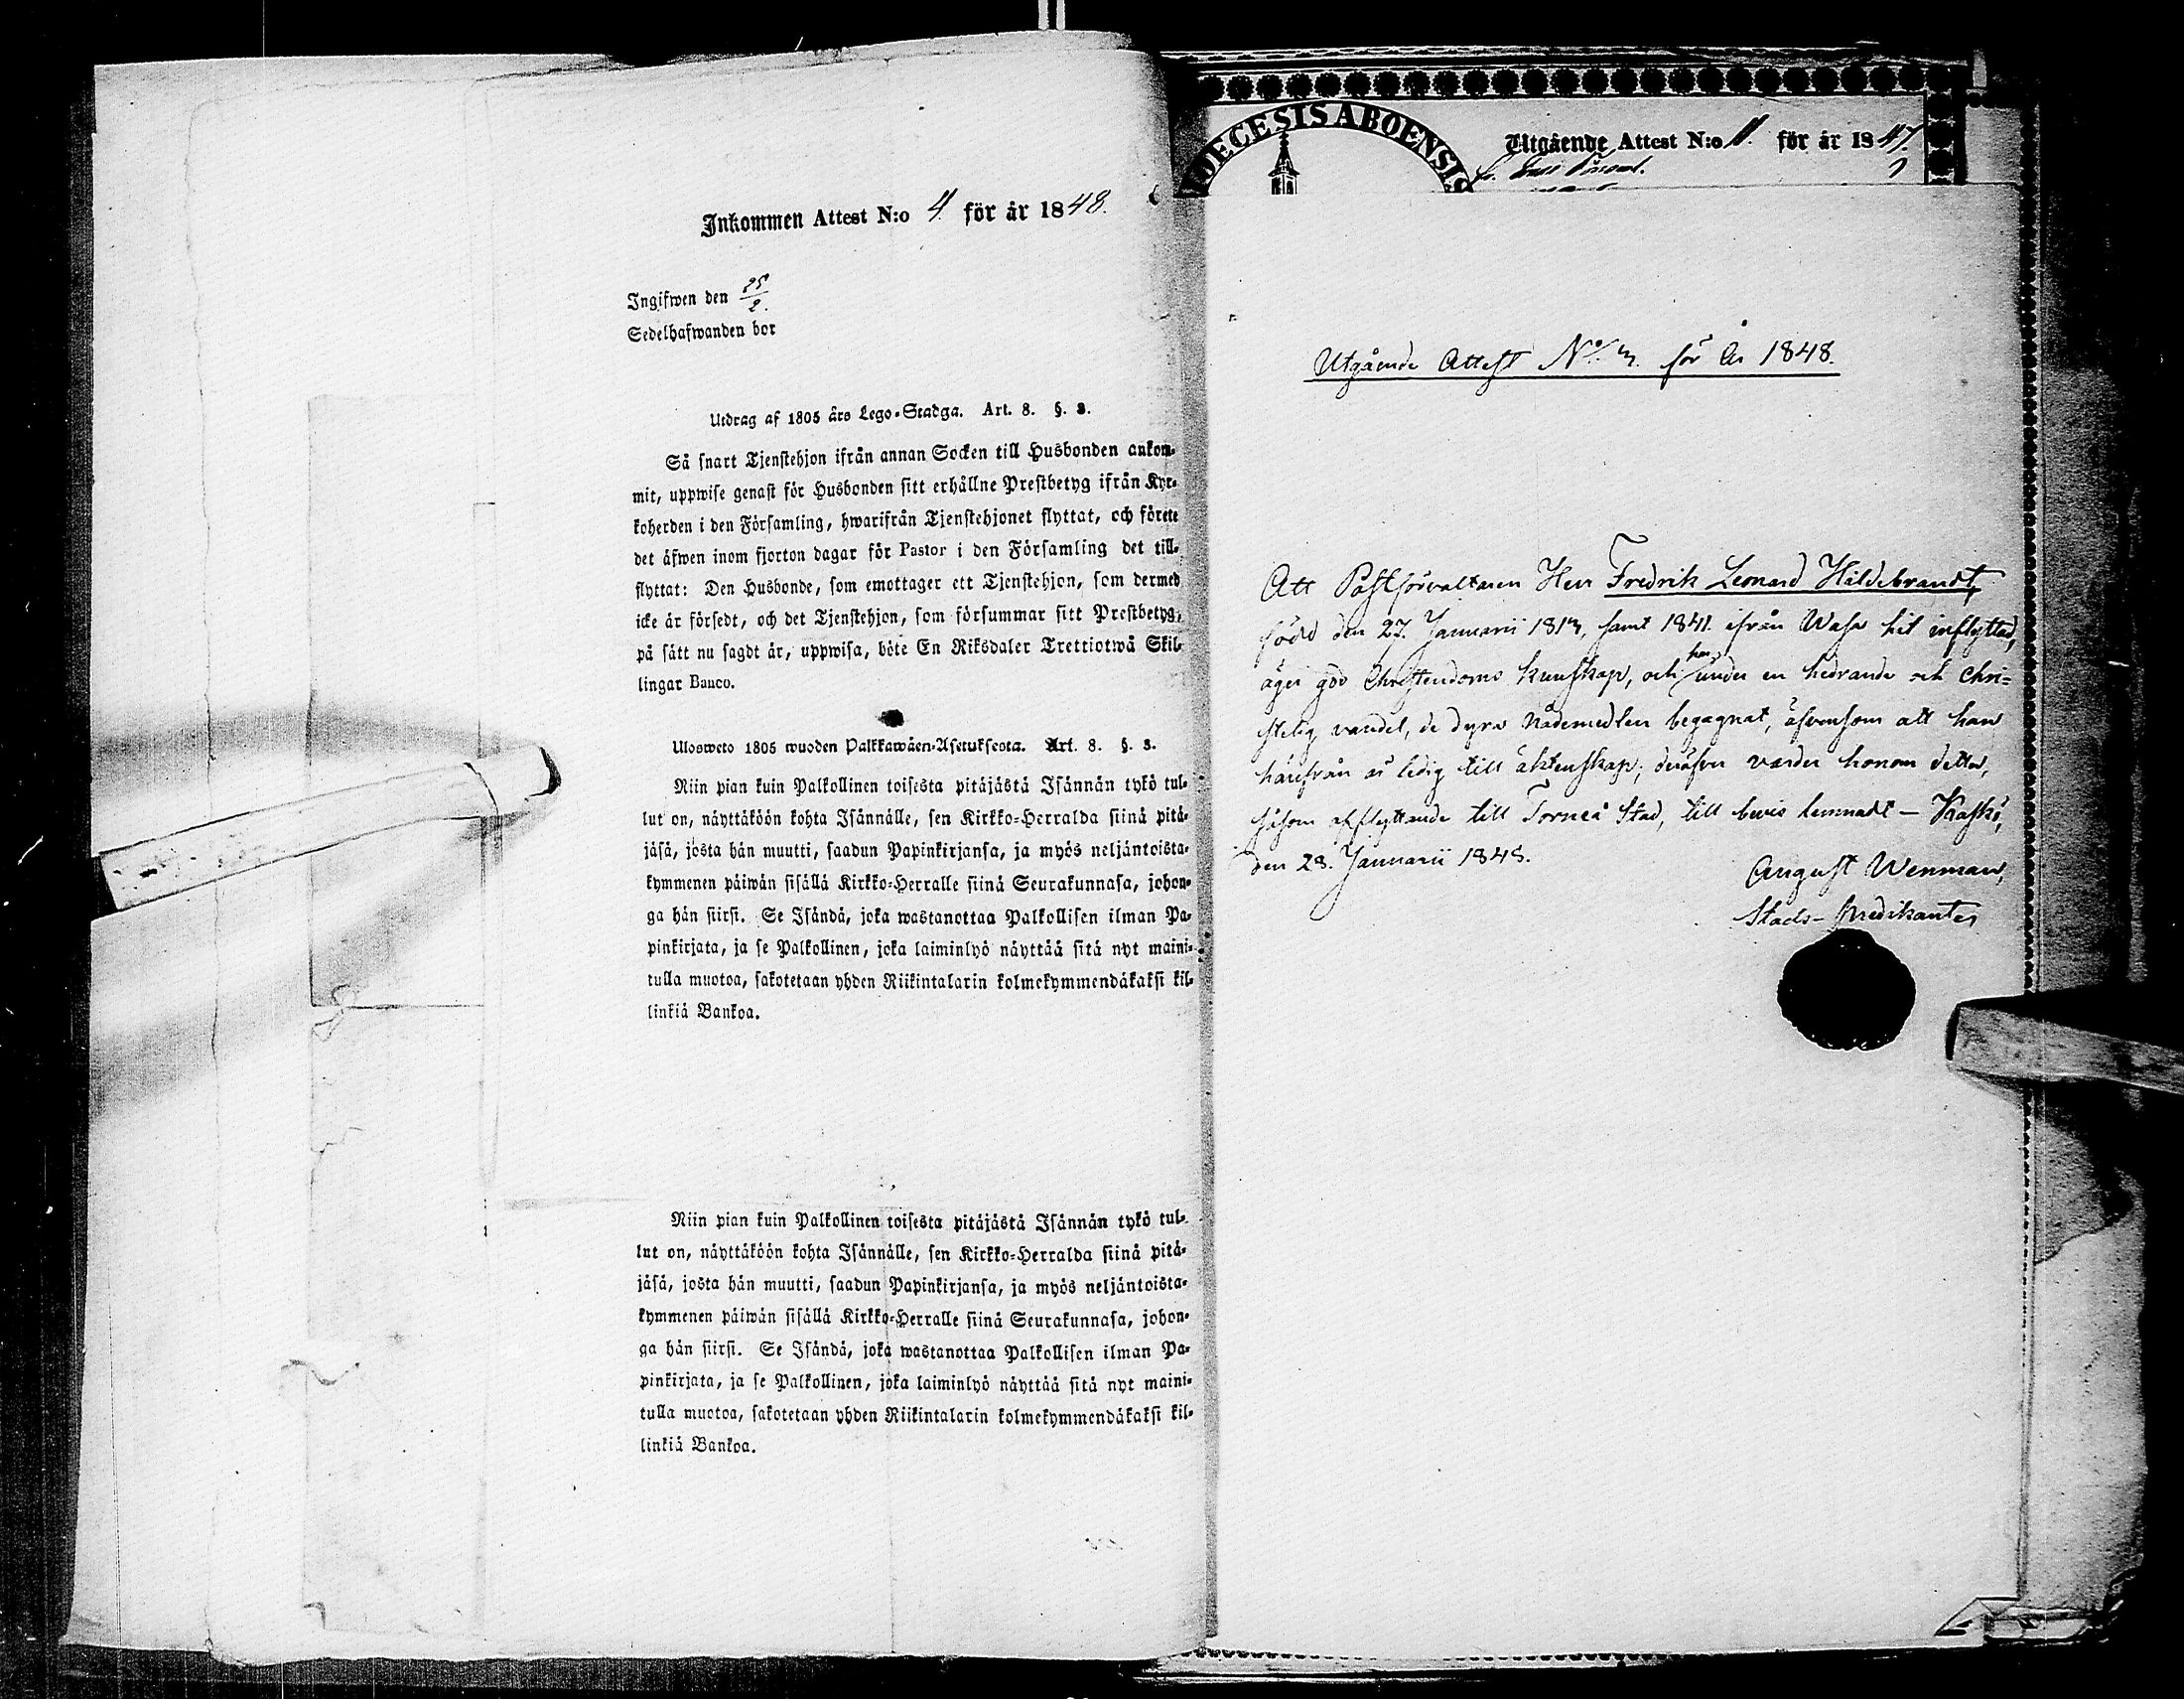 Inkommen Attest N:o 4. för år 1848.
Ingifwen den 25/2.
Sedelhafwanden bor
Utdrag af 1805 års Lego-Stadga. Art. 8. §. 3.
Så snart Tjenstehjon ifrån annan Socken till Husbonden ankom-
mit, uppwise genast för Husbonden sitt erhållne Prestbetyg ifrån Kyr-
koherden i den Församling, hwarifrån Tjenstehjonet flyttat, och förete
det äfwen inom fjorton dagar för Pastor i den Församling det till-
flyttat: Den Husbonde, som emottager ett Tjenstehjon, som dermed
icke är försedt, och det Tjenstehjon, som försummar sitt Prestbetyg,
på sätt nu sagdt är, uppwisa, böte En Riksdaler Trettiotwå Skil-
lingar Banco.
Ulosweto 1805 wuoden Palkkawäen-Asetuksesta. Art. 8. §. 3.
Niin pian kuin Palkollinen toisesta pitäjästä Isännän tykö tul-
lut on, näyttäköön kohta Isännälle, sen Kirkko-Herralda siinä pitä-
jäsä, josta hän muutti, saadun Papinkirjansa, ja myös neljäntoista-
kymmenen päiwän sisällä Kirkko-Herralle siinä Seurakunnasa, johon-
ga hän siirsi. Se Isändä, joka wastanottaa Palkollisen ilman Pa-
pinkirjata, ja se Palkollinen, joka laiminlyö näyttää sitä nyt maini-
tulla muotoa, sakotetaan yhden Riikintalarin kolmekymmendäkaksi kil-
linkiä Bankoa.
Niin pian kuin Palkollinen toisesta pitäjästä Isännän tykö tul-
lut on, näyttäköön kohta Isännälle, sen Kirkko-Herralda siinä pitä-
jäsä, josta hän muutti, saadun Papinkirjansa, ja myös neljäntoista-
kymmenen päiwän sisällä Kirkko-Herralle siinä Seurakunnasa, johon-
ga hän siirsi. Se Isändä, joka wastanottaa Palkollisen ilman Pa-
pinkirjata, ja se Palkollinen, joka laiminlyö näyttää sitä nyt maini-
tulla muotoa, sakotetaan yhden Riikintalarin kolmekymmendäkaksi kil-
linkiä Bankoa.
DIOECESIS ABOENSIS
Utgående Attest N:o 1. för år 1847.
Utgående Attest No. 3. för År 1848.
Att Postförvaltaren Herr Fredrik Leonard Hildebrandt,
född den 27. Januarii 1813, samt 1841. ifrån Wasa hit inflyttad,
äger god Christendoms kunskap, och har under en hedrande och Chri-
stelig vandel, de dyra Nådemedlen begagnat, äfvensom att han
härifrån är ledig till äktenskap; deröfver varder honom detta,
såsom afflyttande till Torneå Stad, till bevis lemnadt – Kaskö,
den 28. Januarii 1848.
August Wenman,
Stads-predikanten